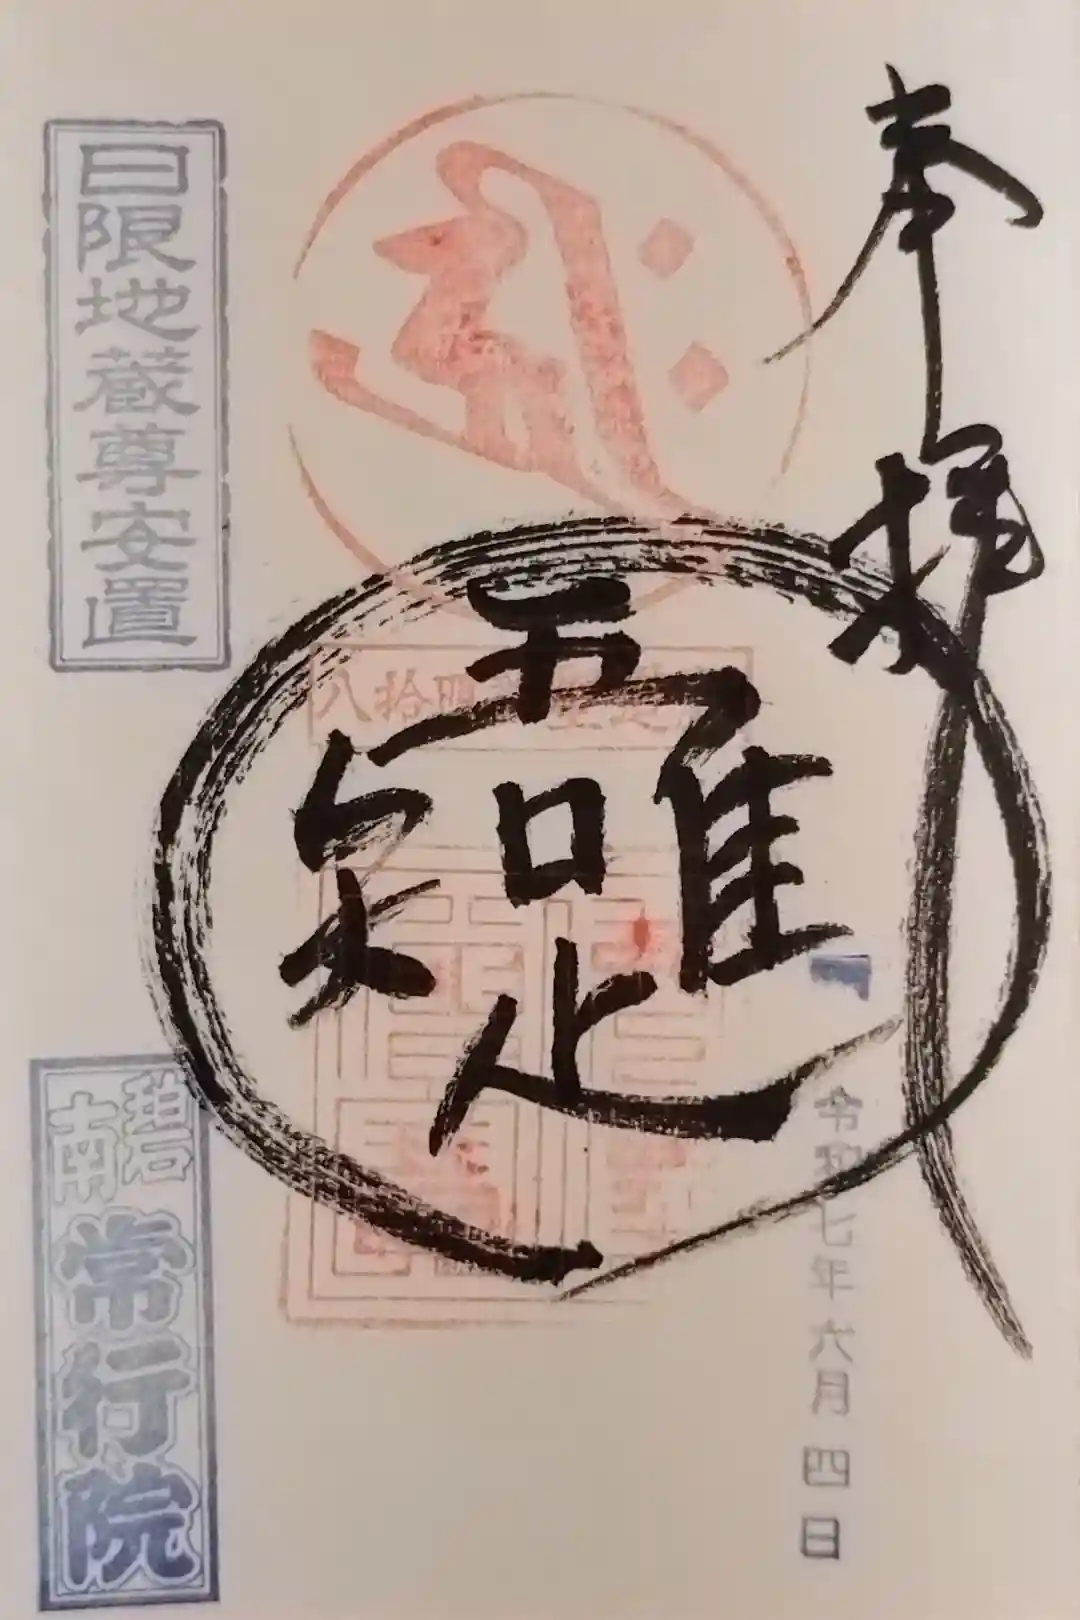 奉拝
令和七年六月四日
吾唯足知
八拾四
日限地蔵尊安置
碧南
常行院